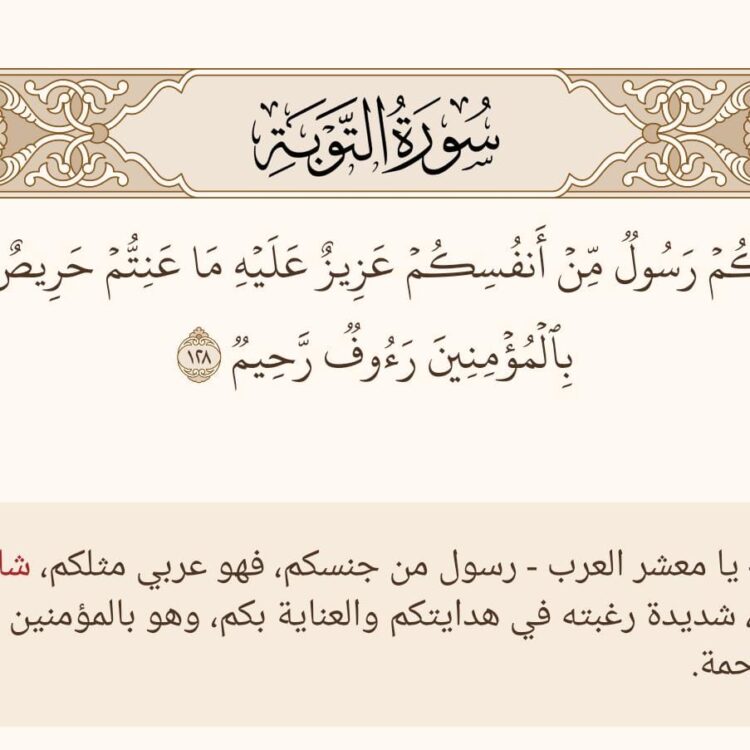 سُورَةُ التَّوۡبَةِ
كُمۡ رَسُولٌ مِّنۡ أَنفُسِكُمۡ عَزِيزٌ عَلَيۡهِ مَا عَنِتُّمۡ حَرِيصٌ
بِٱلۡمُؤۡمِنِينَ رَءُوفٌ رَّحِيمٌ ١٢٨
يا معشر العرب - رسول من جنسكم، فهو عربي مثلكم،
، شديدة رغبته في هدايتكم والعناية بكم، وهو بالمؤمنين
حمة.